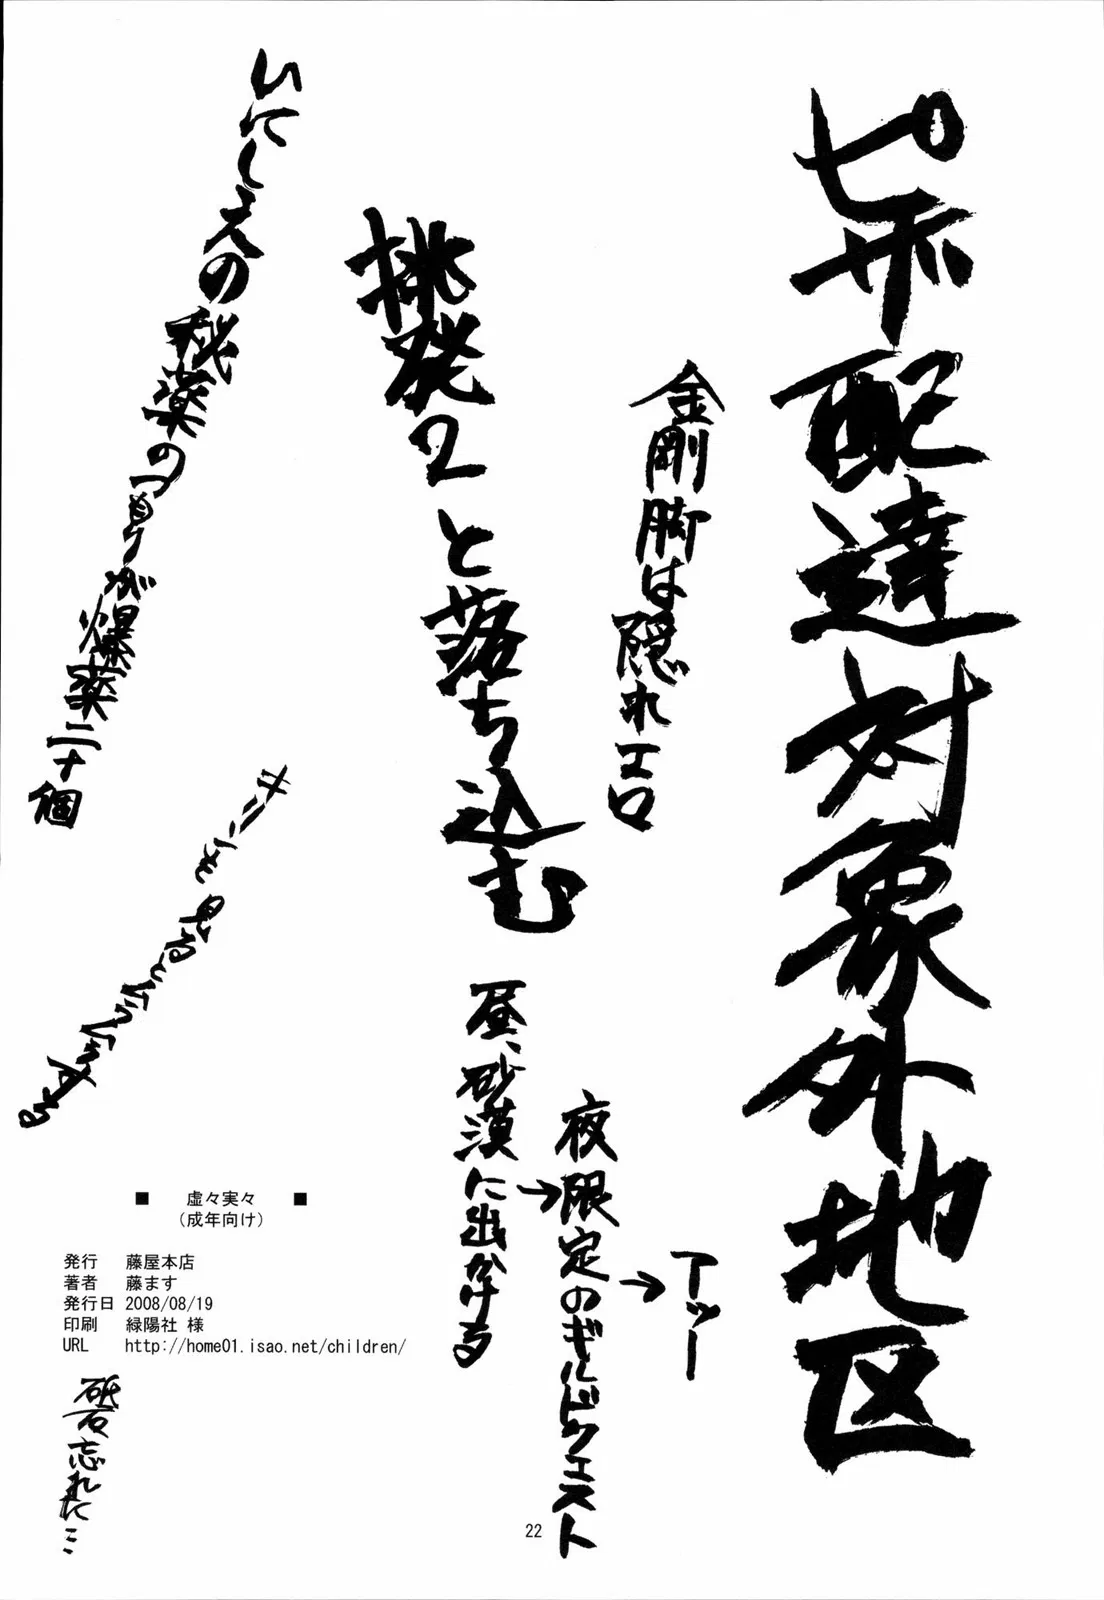 ピザ配達対象外地区
金剛脚は隠れエロ
挑発2と落ち込む
昼、砂漠に出かける
→
夜限定のギルドクエスト
→
アッー
いにしえの秘薬のつもりが爆薬二十個
砥石忘れた…
■ 虚々実々 ■
(成年向け)
発行 藤屋本店
著者 藤ます
発行日 2008/08/19
印刷 緑陽社 様
URL http://home01.isao.net/children/
22